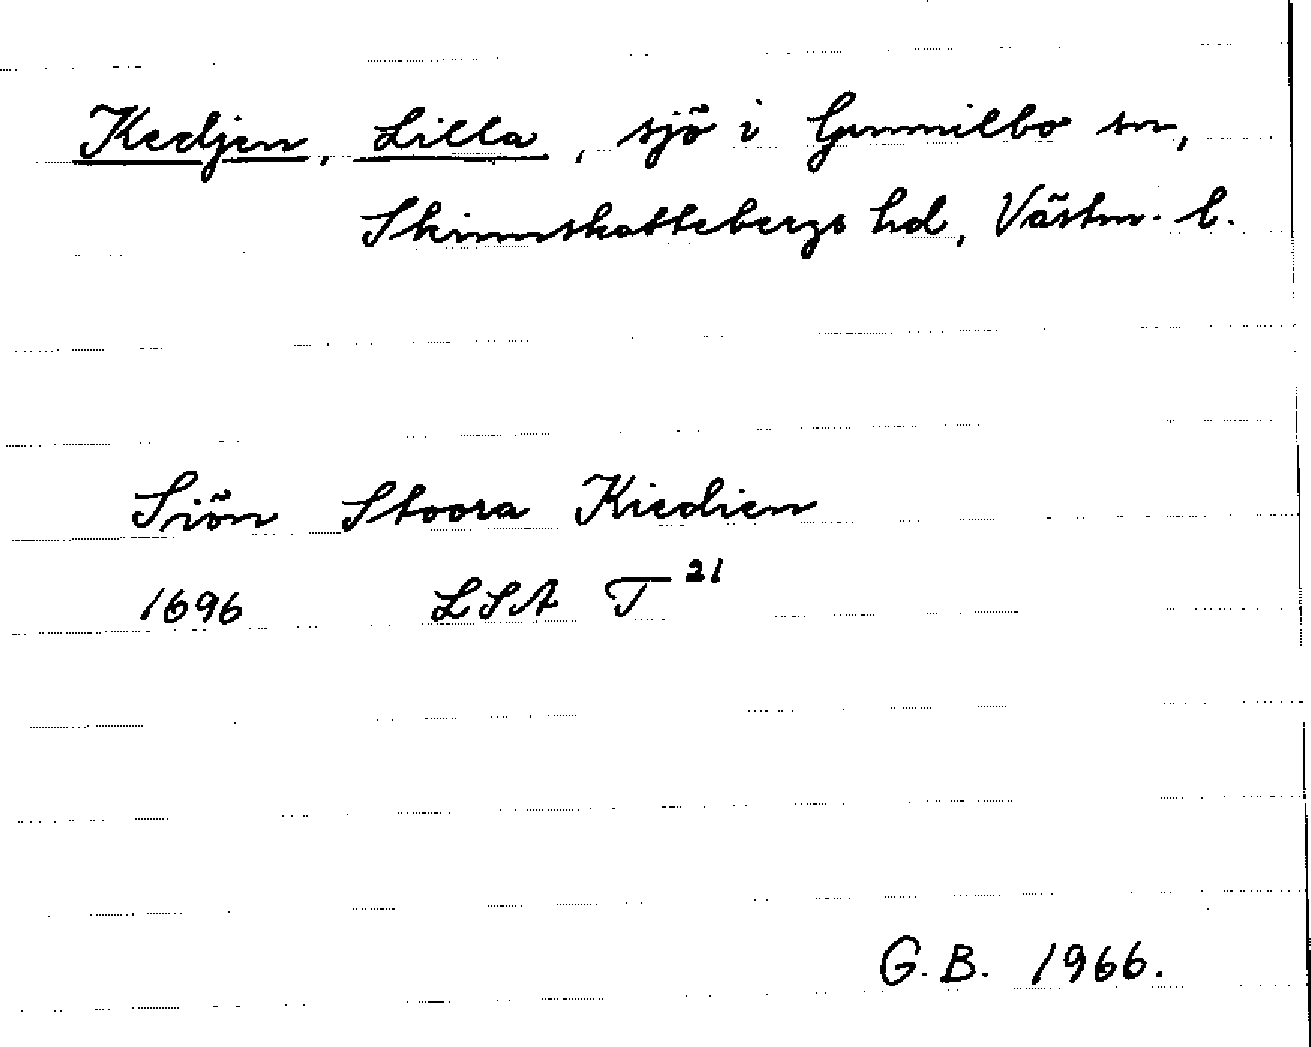 Kedjen, Lilla, sjö i Gunnilbo sn,
Skinnskattebergs hd, Västm. l.
Siön Stoora Kiedien
1696 LSA T 21
G. B. 1966.